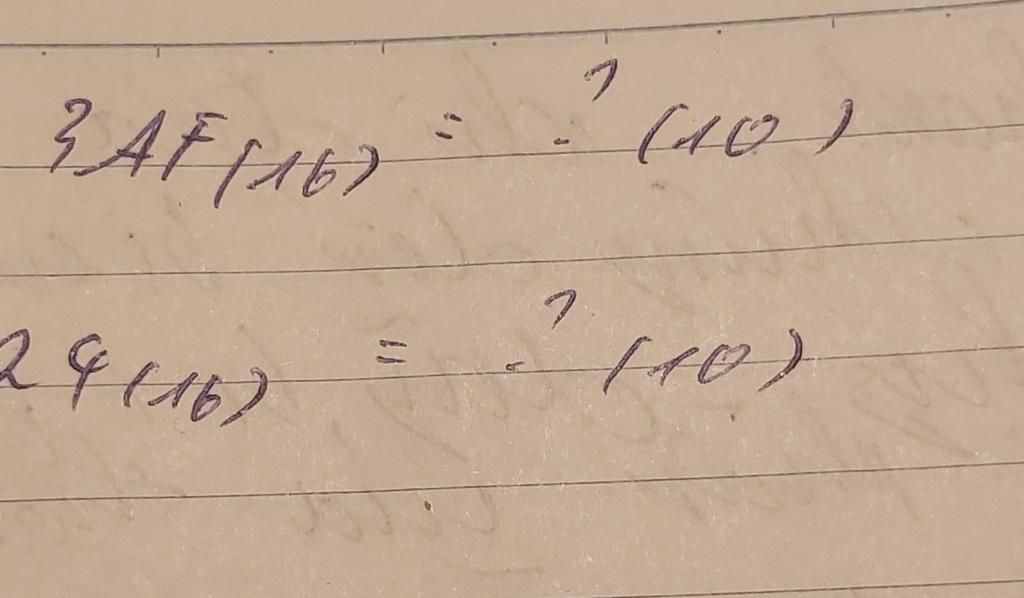 3AF(16) = ? (10)
24(16) = ? (10)